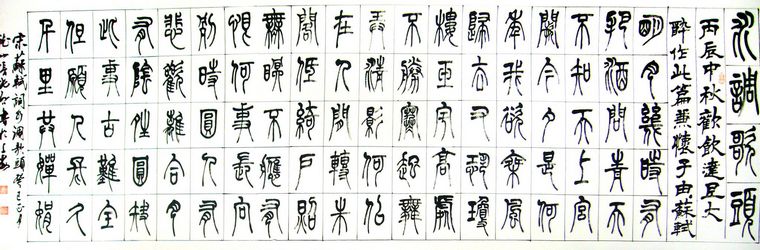 水調歌頭
丙辰中秋歡飲達旦大
醉作此篇兼懷子由蘇軾
明月幾時有
把酒問青天
不知天上宮
闕今夕是何
年我欲乘風
歸去又恐瓊
樓玉宇高處
不勝寒起舞
弄清影何似
在人間轉朱
閣低綺戶照
無眠不應有
恨何事長向
別時圓人有
悲歡離合月
有陰晴圓缺
此事古難全
但願人長久
千里共嬋娟
宋蘇軾詞水調歌頭癸巳